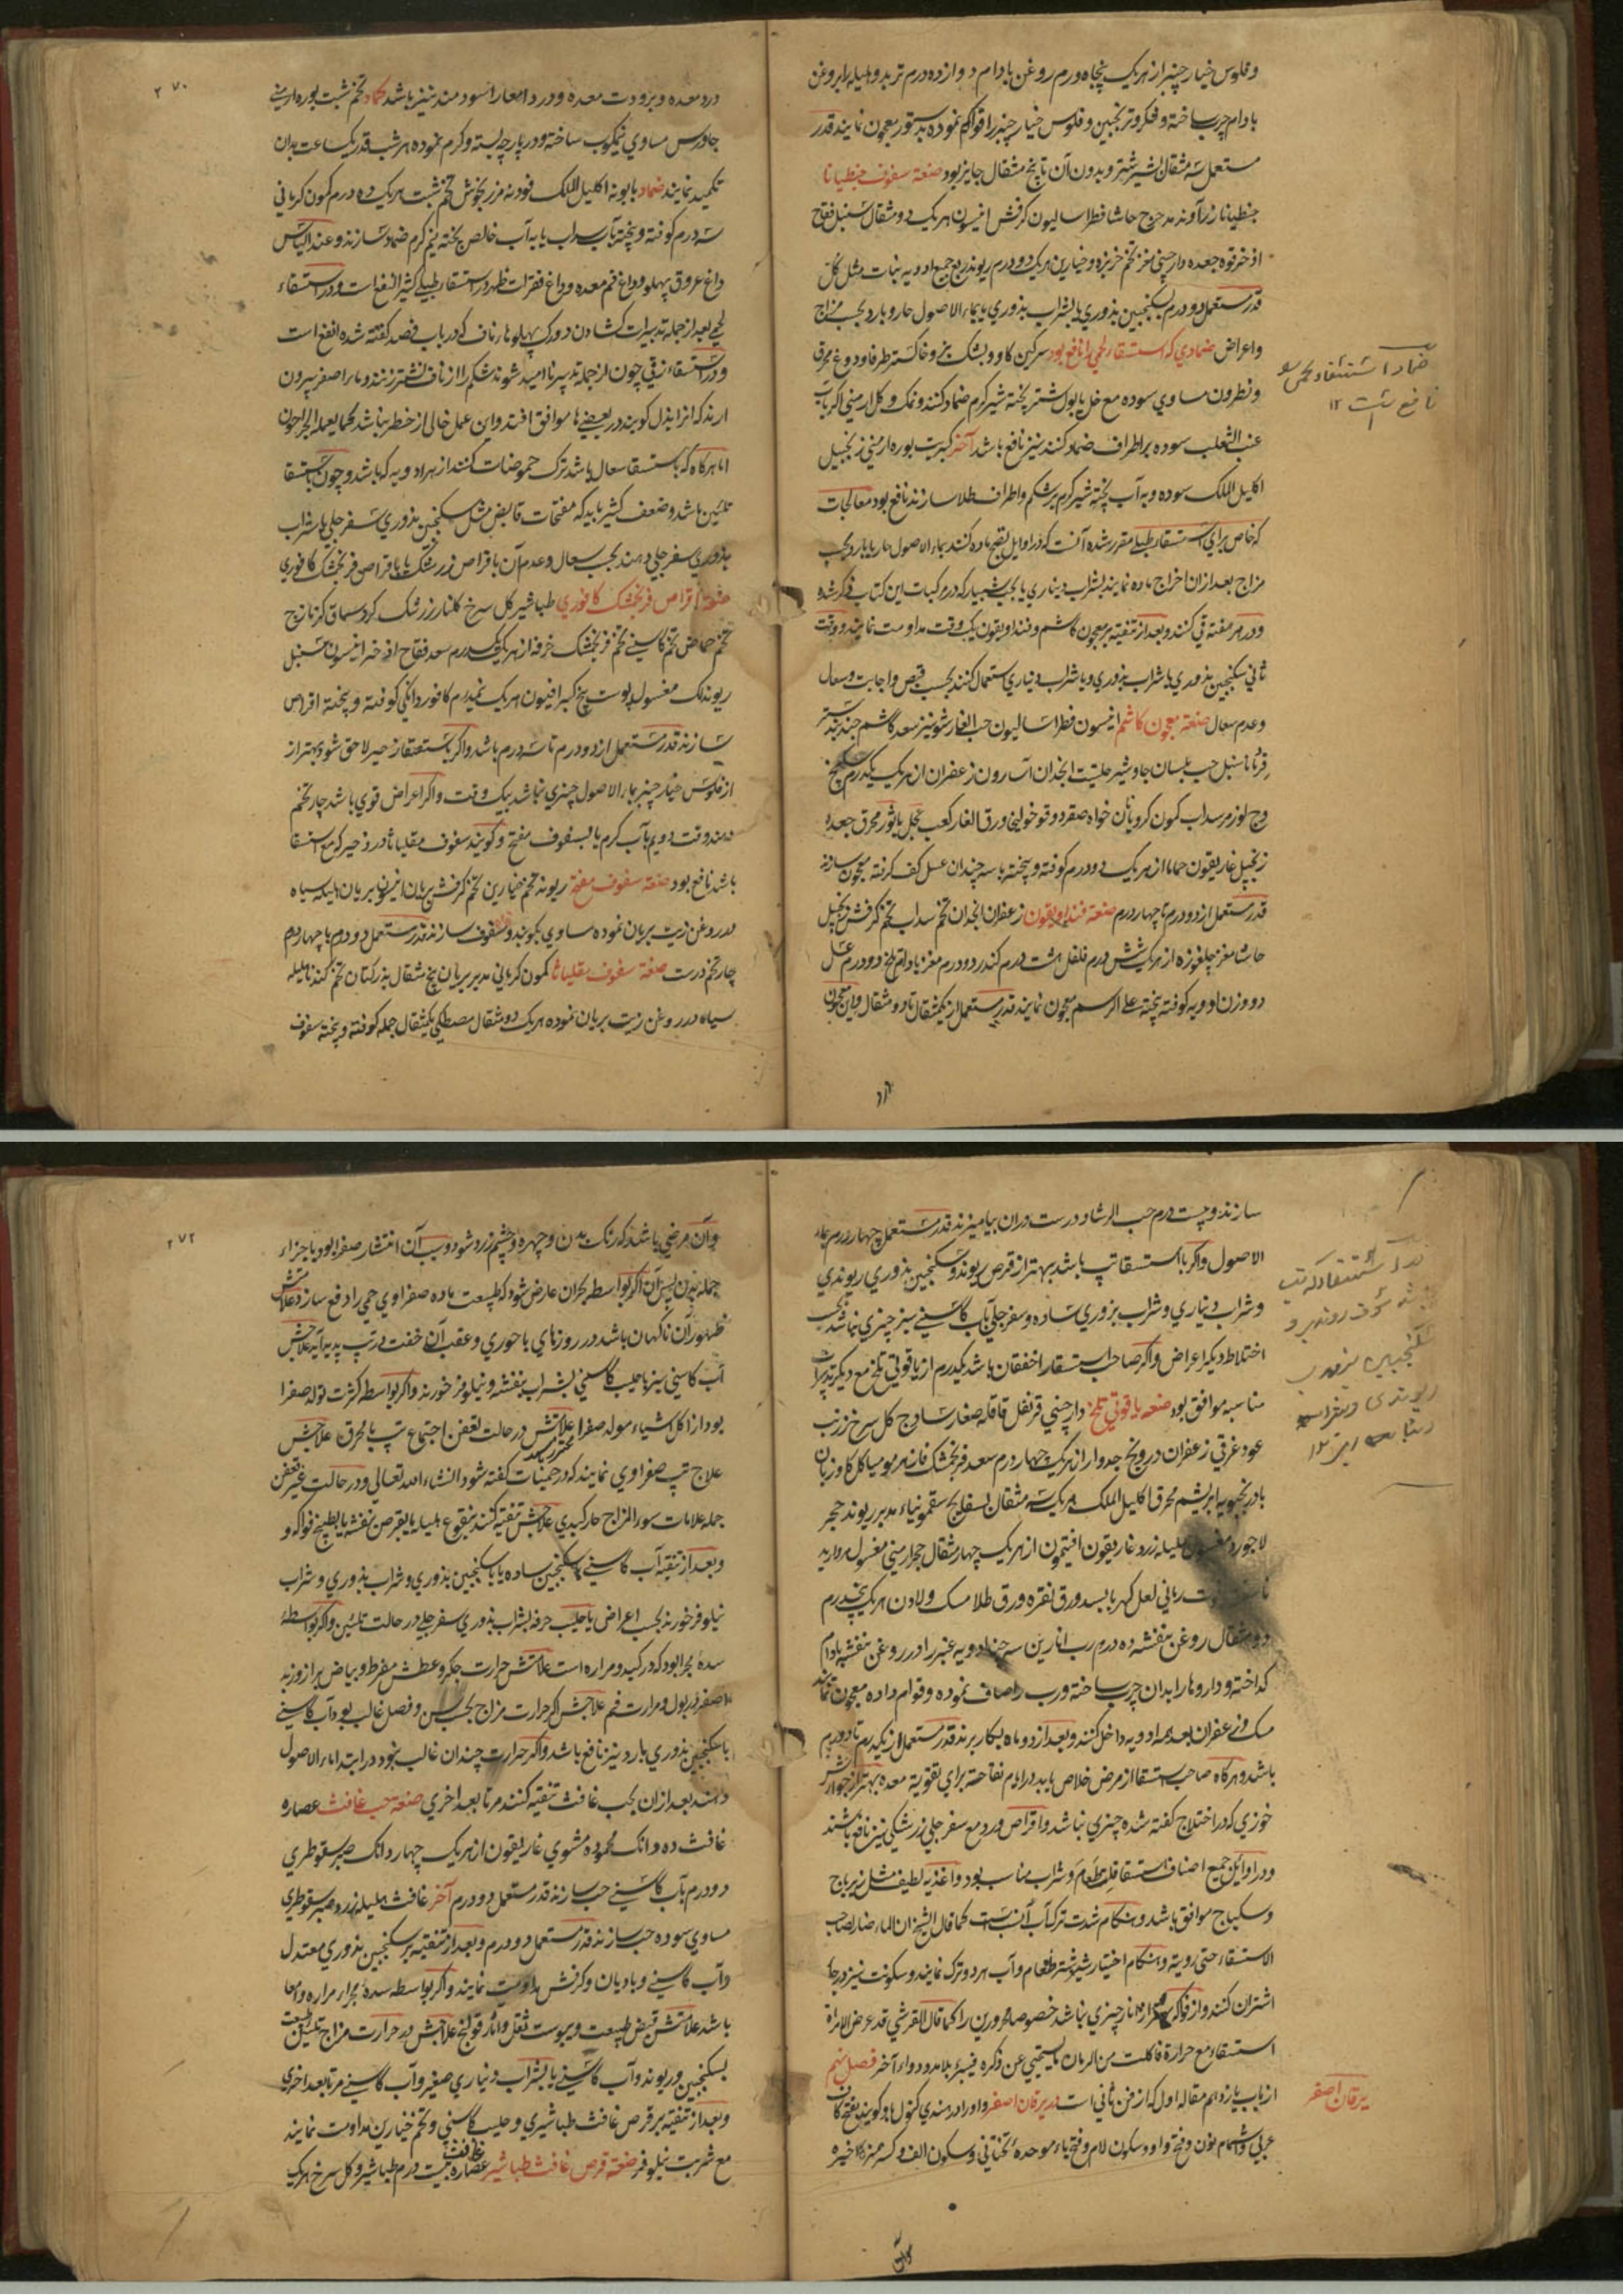 وفلوس خیار چنبر از هریک پنجاه درم روغن بادام دوازده درم تربد وهلیله را بروغن
بادام چرب ساخته وفکر وترنجبین وفلوس خیار چنبر را قوام نموده بدستور معجون نمایند قدر
مستعمل سه مثقال بشیر شتر وبدون آن تا پنج مثقال جایز بود صنعة سفوف جنطیانا
جنطیانا زراوند مدحرج حاشا فطراسالیون کرفش انیسون هریک دو مثقال سنبل فقاح
اذخر قوه جعده دارچینی مغز تخم خرپزه وخیارین هریک دو درم ریوند ربع جمیع ادویه نبات مثل کل
قدر مستعمل دو درم بسکنجبین بذوری یا بشراب بذوری یا بماء الاصول حار وبارد بحسب مزاج
واعراض ضمادی که استسقاء لحمی را نافع بود سرکین کاو وپشک بز وخاکستر طرفا ودوغ محرق
ونطرون مساوی سوده مع خل یا بول شتر پخته شیر کرم ضماد کنند ونمک وکل ارمنی اکر باب
عنب الثعلب سوده بر اطراف ضماد کنند نیز نافع باشد آخر کبریت بوره ارمنی زنجبیل
اکلیل الملک سوده وبه آب پخته شیر کرم بر شکم واطراف طلا سازند نافع بود معالجات
که خاص برای استسقاء طبلی مقرر شده آنست که در اوایل نضج ماده کنند بماء الاصول حار یا بارد بحسب
مزاج بعد ازان اخراج ماده نمایند بشراب دیناری یا بحب شبیار که در مرکبات این کتاب ذکر شده
ودر هر هفته قی کنند وبعد از تنقیه بر معجون کاشم وفنداویقون یک وقت مداومت نمایند ووقت
ثانی سکنجبین بذوری با شراب بزوری وبا شراب دیناری استعمال کنند بحسب قبض واجابت وسعال
وعدم سعال صنعة معجون کاشم انیسون فطراسالیون حب الغار شونیز سعد کاشم جندبیدستر
قردمانا سنبل حب بلسان جاوشیر حلتیت انجدان اسارون زعفران از هریک یکدرم
وج لوز مر سداب کمون کرویا نان خواه صعتر دوقو خولنجان ورق الغار کعب عجل یا ثور محرق جعده
زنجبیل غاریقون حماما از هریک دو درم کوفته وبیخته با سه چندان عسل کف کرفته معجون سازند
قدر مستعمل از دو درم تا چهار درم صنعة فنداویقون زعفران انجدان تخم سداب تخم کرفش زنجبیل
حاشا مغز چلغوزه از هریک شش درم فلفل هشت درم کندر دو درم مغز بادام تلخ دو درم عسل
دو وزن ادویه کوفته بیخته علی الرسم معجون نمایند قدر مستعمل از یکمثقال تا دو مثقال واین معجون
ضماد استسقاء لحمی
نافع است ۱۲
۲۷۰
درد معده وبرودت معده ودرد امعا را سودمند نیز باشد کماد تخم شبت بوره ارمنی
جاورس مساوی نیمکوب ساخته ودر پارچه بسته وکرم نموده هر شب قدر یکساعت بدان
تکمید نمایند ضماد بابونه اکلیل الملک فودنه مرزنجوش تخم شبت هریک ده درم کمون کرمانی
سه درم کوفته وبیخته بآب سداب یا به آب خالص پخته نیم کرم ضماد سازند وعند الیاس
داغ عروق پهلو وداغ فم معده وداغ فقرات ظهر در استسقاء طبلی کثیر النفع است ودر استسقاء
لحمی بعد از جمله تدبیرات کشادن دو رک پهلو ناف که در باب فصد کفته شده انفع است
ودر استسقاء زقی چون از جمله تدبیر ناامید شوند شکم را از ناف نشتر زنند وماء اصفر بیرون
ارند که انرا بذل کویند در بعضی ها موافق افتد واین عمل خالی از خطر نباشد کما یعمله الجراحون
اما هرکاه که با استسقا سعال باشد ترک حموضات کنند از هر ادویه که باشد وچون با استسقا
تلئین باشد وضعف کثیر باید که مفتحات قابض مثل سکنجبین بذوری سفرجلی یا شراب
بذوری سفرجلی دهند بحسب سعال وعدم آن با قراص زرشک یا با قراص فرنجمشک کافوری
صنعة اقراص فرنجمشک کافوری طباشیر کل سرخ کلنار زرشک کرد سماق کزمازج
تخم حماض تخم کاسنی تخم فرنجمشک خرفه از هریک یکدرم سعد فقاح اذخر انیسون سنبل
ریوند لک مغسول پوست بیخ کبر افیون هریک نیمدرم کافور دانکی کوفته وبیخته اقراص
سازند قدر مستعمل از دو درم تا سه درم باشد واکر با استسقا زحیر لاحق شود بهتر از
از فلوس خیار چنبر بماء الاصول چیزی نباشد بیک وقت واکر اعراض قوی باشد چار تخم
دهند وقت دویم بآب کرم یا بسفوف مفتح وکویند سفوف مقلیاثا در زحیر که مع استسقا
باشد نافع بود صنعة سفوف مفتح ریوند تخم خیارین تخم کرفش بریان انیسون بریان هلیله سیاه
در روغن زیت بریان نموده مساوی بکوبند وسفوف سازند قدر مستعمل دو درم با چهار درم
چار تخم درست صنعة سفوف مقلیاثا کمون کرمانی مدبر بریان پنج مثقال بذر کتان تخم کندنا هلیله
سیاه در روغن زیت بریان نموده هریک دو مثقال مصطکی یکمثقال جمله کوفته وبیخته سفوف
سازند وبیست درم حب الرشاد درست دران بیامیزند قدر مستعمل چهار درم بماء
الاصول واکر با استسقا تپ باشد بهتر از قرص ریوند وسکنجبین بذوری ریوندی
وشراب دیناری وشراب بزوری ساده وسفرجلی بآب کاسنی سبز چیزی نباشد بحسب
اختلاط دیکر اعراض واکر صاحب استسقا را خفقان باشد یکدرم از یاقوتی تلخ مع دیکر تدبیرات
مناسبه موافق بود صنعه یاقوتی تلخ دارچینی قرنفل قاقله صغار سادج کل سرخ زرنب
عود غرقی زعفران درونج جدوار از هریک چهار درم سعد فرنجمشک فادزهر مومیا کل کاوزبان
بادرنجبویه ابریشم محرق اکلیل الملک هریک سه مثقال بسفایج سقمونیاء مدبر ریوند حجر
لاجورد مغسول هلیله زرد غاریقون افتیمون از هریک چهار مثقال حجر ارمنی مغسول مروارید
رمانی لعل کهربا بسد ورق نقره ورق طلا مسک ولادن هریک پنجدرم
دو مثقال روغن بنفشه ده درم رب انارین سه چند ادویه عنبر را در روغن بنفشه بادام
کداخته وداروها را بدان چرب ساخته ورب را صاف نموده وقوام داده معجون نمایند
مسک وزعفران بعد همه ادویه داخل کنند وبعد از دو ماه بکار برند قدر مستعمل از یکدرم تا دو درم
باشد وهرکاه صاحب استسقا از مرض خلاص یابد در ایام نقاهت برای تقویة معده بهتر از جوارش
خوزی که در اختلاج کفته شده چیزی نباشد واقراص ورد مع سفرجلی زرشکی نیز نافع باشند
ودر اوایل جمیع اصناف استسقا قلة طعام وشراب مناسب بود واغذیه لطیف مثل زیرباج
وسکباج موافق باشد وهنکام شدت ترک آب انسب است کما قال الشیخ ان الماء ضار لصاحب
الاستسقاء حتی رویته وهنکام اختیار شیر شتر طعام وآب هر دو ترک نمایند وسکونت نیز در جاء
اشتران کنند واز فواکه بهتر از انار چیزی نباشد خصوصا محرورین را کما قال القرشی قد عرض لامراة
استسقاء مع حرارة فاکلت من الرمان ما یستحیی عن ذکره فبرئ بلا مدد دواء آخر فصل نهم
از باب یازدهم مقاله اول که از فن ثانی است در یرقان اصفر واورا در هندی کنول باو کویند بفتح کاف
عربی واشمام نون وفتح واو وسکون لام وفتح باء موحدة تحتانی وسکون الف وکسر همزه اخیره
برای استسقاء که تپ
یرقان اصفر
۲۷۲
وآن مرضی باشد که رنک بدن وچهره وچشم زرد شود وسبب آن انتشار صفرا بود باجزاء
جمله بدن پس آن اکر بواسطه بحران عارض شود که طبیعت ماده صفراوی حمی را دفع سازد علامتش
ظهور آن ناکهان باشد در روزهای باحوری وعقب آن خفت در تپ پدید آید علاجش
آب کاسنی سبز یا حلیب کاسنی بشراب بنفشه ونیلوفر خورند واکر بواسطه کثرت تولد صفرا
بود از اکل اشیاء مولد صفرا علامتش در حالت تعفن اجتماع تپ یا محرق علاجش
علاج تپ صفراوی نمایند که در حمیات کفته شود انشاء الله تعالی ودر حالت غیر تعفن
جمله علامات سوء المزاج حار کبدی علاجش تنقیه کنند بنقوع هلیله یا بقرص بنفشه یا بطبیخ فواکه و
وبعد از تنقیه آب کاسنی با سکنجبین ساده یا با سکنجبین بذوری وشراب بذوری وشراب
نیلوفر خورند بحسب اعراض یا حلیب خرفه بشراب بذوری سفرجلی در حالت تلئین واکر بواسطه
سده مجرا بود که در کبد ومراره است علامتش حرارت جکر وعطش مفرط وبیاض براز وزبد
اصفر در بول ومرارت فم علاجش اکر حرارت مزاج بحسب سن وفصل غالب بود آب کاسنی
با سکنجبین بذوری بارد نیز نافع باشد واکر حرارت چندان غالب نبود در ابتدا ماء الاصول
دهند بعد ازان بحب غافث تنقیه کنند مرتا بعد اخری صنعة حب غافث عصاره
غافث ده دانک محموده مشوی غاریقون از هریک چهار دانک صبر سقوطری
دو درم بآب کاسنی حب سازند قدر مستعمل دو درم آخر غافث هلیله زرد صبر سقوطری
مساوی سوده حب سازند قدر مستعمل دو درم وبعد از تنقیه بر سکنجبین بذوری معتدل
وآب کاسنی وبادیان وکرفش مداومت نمایند واکر بواسطه سدۀ مجراء مراره وامعا
باشد علامتش قبض طبیعت ویبوست ثفل وآثار قولنج علاجش در حرارت مزاج تلئین طبیعت
بسکنجبین وریوند وآب کاسنی یا بشراب دیناری صغیر وآب کاسنی مرتا بعد اخری
وبعد از تنقیه بر قرص غافث طباشیری وحلیب کاسنی وتخم خیارین مداومت نمایند
مع شربت نیلوفر صنعة قرص غافث طباشیر عصاره غافث بیست درم طباشیر وکل سرخ هریک